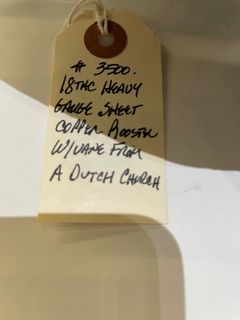 # 3500.
18THC HEAVY
GAUGE SHEET
COPPER ROOSTER
W/VANE FROM
A DUTCH CHURCH